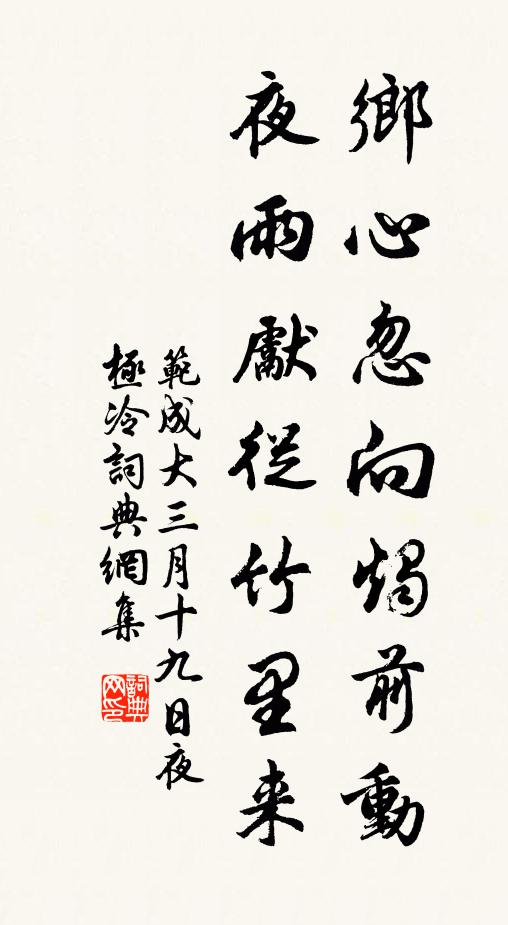 鄉心忽向燭前動
夜雨獻從竹里来
範成大三月十九日夜
極冷詞典網集
詞典
网印